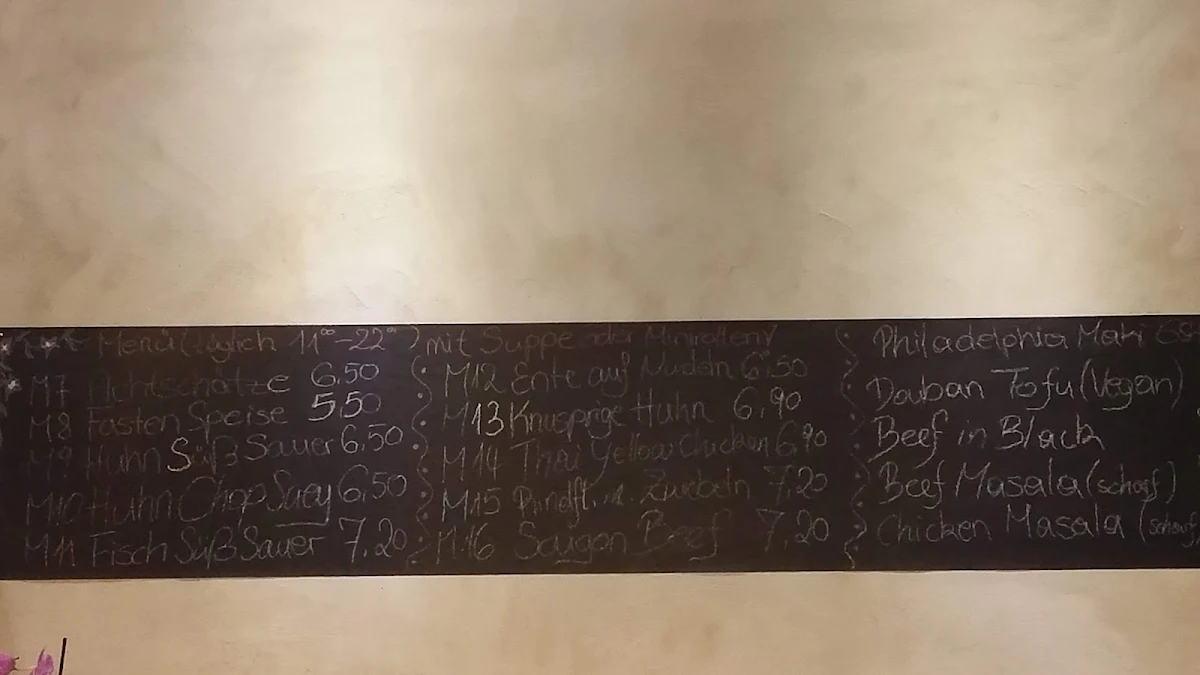 Menü (täglich 11°°-22°°) mit Suppe oder Minirollen
M7 Achtschätze 6,50
M8 Fasten Speise 5,50
M9 Huhn Süß Sauer 6,50
M10 Huhn Chop Suey 6,50
M11 Fisch Süß Sauer 7,20
M12 Ente auf Nudeln 6,50
M13 Knusprige Huhn 6,90
M14 Thai Yellow Chicken 6,90
M15 Rindfl. m. Zwiebeln 7,20
M16 Saigon Beef 7,20
Philadelphia Maki
Douban Tofu (Vegan)
Beef in Black
Beef Masala (scharf)
Chicken Masala (scharf)